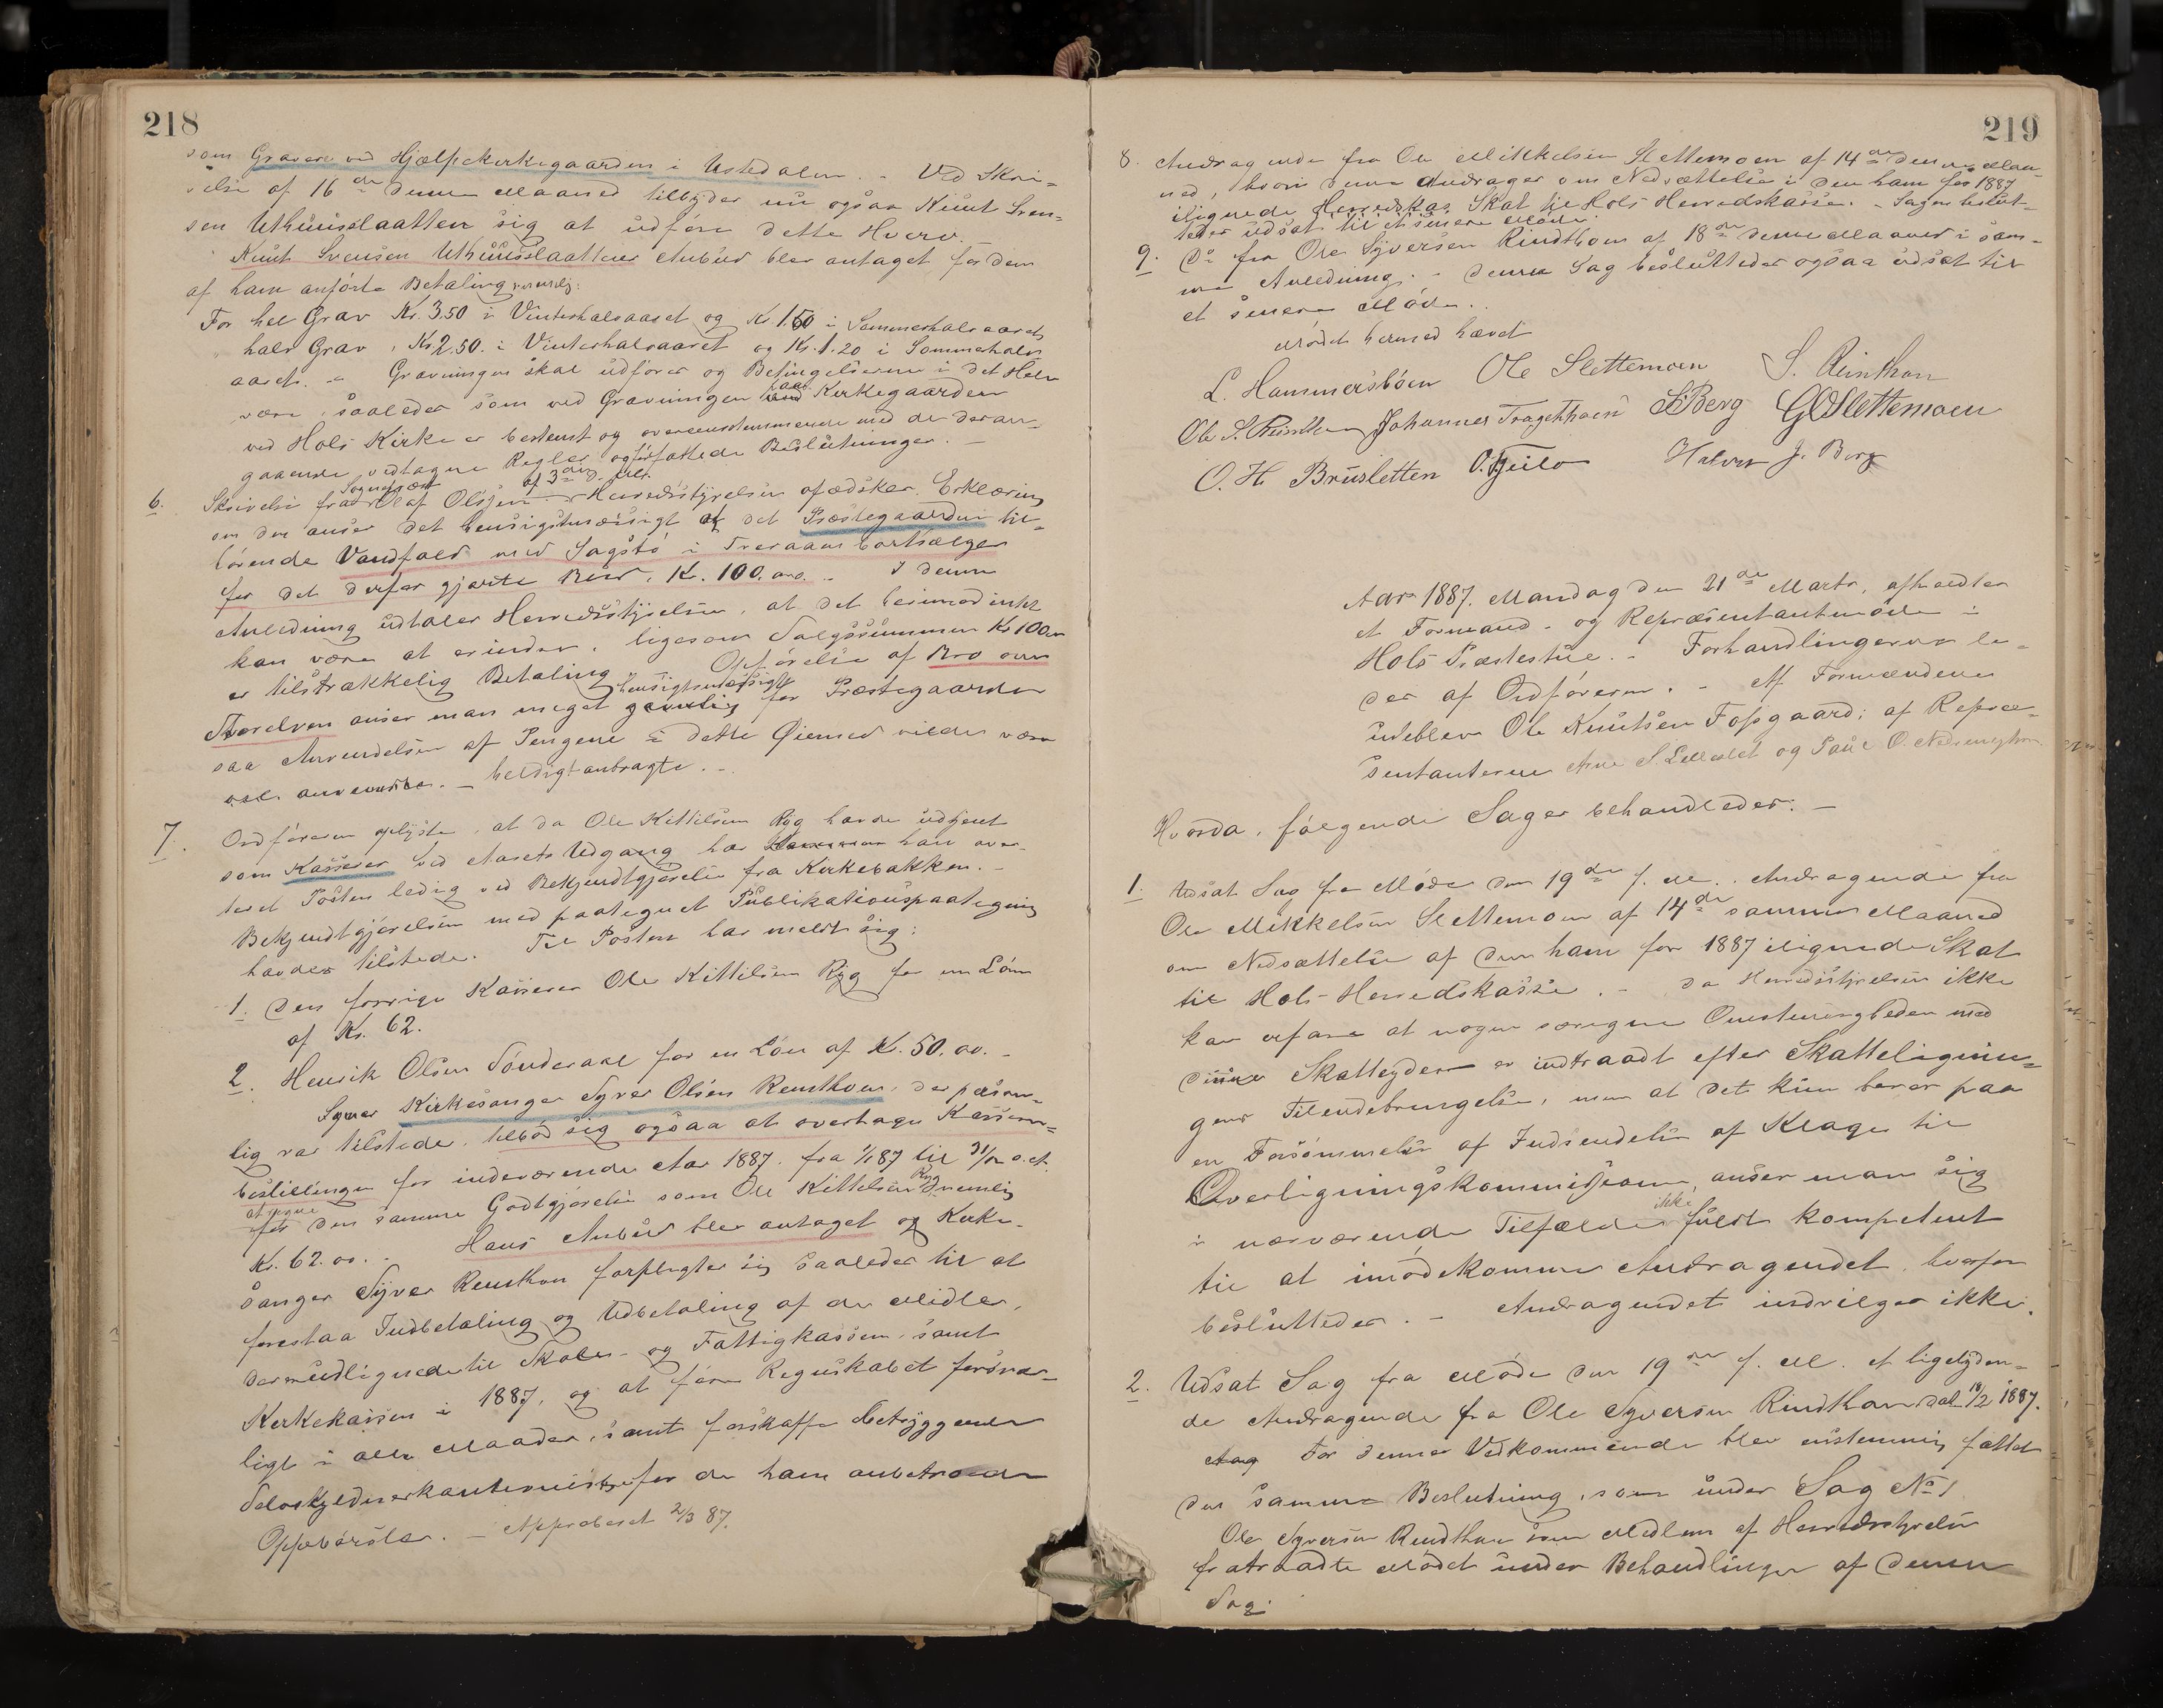 218
som Graver ved Hjælpekirkegaarden i Ustedalen. - Ved Skri-
velse af 16de denne Maaned tilbyder nu ogsaa Knut Sven-
sen Uthuusslaatten sig at udføre dette Hverv.
Knut Svensen Uthuusslaattens Anbud blev antaget for den
af ham anførte Betaling nemlig:
For hel Grav Kr. 3.50 i Vinterhalvaaret og Kr. 1.60 i Sommerhalvaaret
halv Grav, Kr. 2.50. i Vinterhalvaaret og Kr. 1.20 i Sommerhalv-
aaret. - Gravningen skal udføres og Betingelserne i det Hele
være, saaledes som ved Gravningen paa Kirkegaarden
ved Hols Kirke er bestemt og overensstemmende med de deran-
gaaende vedtagne Regler og fattede Beslutninger. -
6. Skrivelse fra Sogneprest Olaf Olsen af 3die d. M. Herredsstyrelsen afædsker Erklæring
om den anser det hensigtsmæssigt at det Præstegaarden til-
hørende Vandfald med Sagstø i Tveraaen bortsælges
for det derfor gjorte Bud, Kr. 100.00. - I denne
Anledning udtaler Herredsstyrelsen, at det herimod intet
kan være at erindre, ligesom Salgssummen Kr 100.00
er tilstrækkelig Betaling. Opførelse af Bro over
Storelven anser man meget hensigtsmæssigt for Præstegaarden
saa Anvendelsen af Pengene i dette Øiemed vilde være
heldigt anbragte. -
7. Ordføreren oplyste, at da Ole Kittilsen Ryg havde udtjent
som Kasserer ved Aarets Udgang har han aver-
teret Posten ledig ved Bekjendtgjørelse fra Kirkebakken. -
Bekjendtgjørelsen med paategnet Publikationspaategning
havdes tilstede. Til Posten har meldt sig:
1. Den forrige Kasserer Ole Kittilsen Ryg for en Løn
af Kr. 62.
2. Henrik Olsen Sønderaal for en Løn af Kr. 50.00. -
Kirkesanger Syver Olsen Reinthon, der person-
lig var tilstede, tilbød sig ogsaa at overtage Kasserer-
bestillingen for indeværende Aar 1887. fra 1/1 87 til 31/12 s. A.
for den samme Godtgjørelse som Ole Kittilsen Ryg nemlig
Kr. 62.00. - Hans Anbud blev antaget og Kirke-
sanger Syver Reinthon forpligter sig saaledes til at
forestaa Indbetaling og Udbetaling af de Midler,
der er udlignede til Skole- og Fattigkassen, samt
Kirkekassen i 1887, og at føre Regnskabet forsvar-
ligt i alle Maader, samt forskaffe betryggende
Selvskyldnerkautionister for de ham anbetroede
Oppebørsler. - Approberet 2/3 87.
219
8. Andragende fra Ole Mikkelsen Slettemoen af 14de denne Maa-
ned, hvori denne andrager om Nedsættelse i den ham for 1887
ilignede Skat til Hols Herredskasse. - Sagen beslut-
tedes udsat til et senere Møde.
9. Do fra Ole Syversen Rindthon af 18de denne Maaned i sam-
me Anledning. - Denne Sag besluttedes ogsaa udsat til
et senere Møde.
Mødet hermed hævet
L. Hammersbøen Ole Slettemoen S. Reinthon
Ole S. Rindthon Johannes Tragethon S Berg G O Slettemoen
O. H. Brusletten O. Geilo Halvor J. Berg
Aar 1887. Mandag den 21de Marts, afholdtes
et Formand- og Repræsentantmøde i
Hols Præstestue. - Forhandlingerne le-
des af Ordføreren. - Af Formændene
udeblev Ole Knutsen Fossgaard; af Repræ-
sentanterne Arne S. og Paul O.
Hvorda, følgende Sager behandledes: -
1. Udsat Sag fra Møde den 19de f. M. Andragende fra
Ole Mikkelsen Slettemoen af 14de samme Maaned
om Nedsættelse af den ham for 1887 ilignede Skat
til Hols Herredskasse. - Da Herredsstyrelsen ikke
kan erfare at nogen særegne Omstændigheder med
denne Skatteyder er indtraadt efter Skattelignin-
gens Tilendebringelse, men at det kun beror paa
en Forsømmelse af Indsendelse af Klage til
Overligningskommissionen, anser man sig
i nærværende Tilfælde ikke fuldt kompetent
til at imødekomme Andragendet, hvorfor
besluttedes. - Andragendet indvilges ikke.
2. Udsat Sag fra Møde den 19de f. M. et ligelyden-
de Andragende fra Ole Syversen Rindthon dat 18/2 1887.
For dennes Vedkommende blev enstemmig fattet
den samme Beslutning, som under Sag No 1
Ole Syversen Rindthon som Medlem af Herredsstyrelsen
fratraadte Mødet under Behandlingen af denne
Sag.